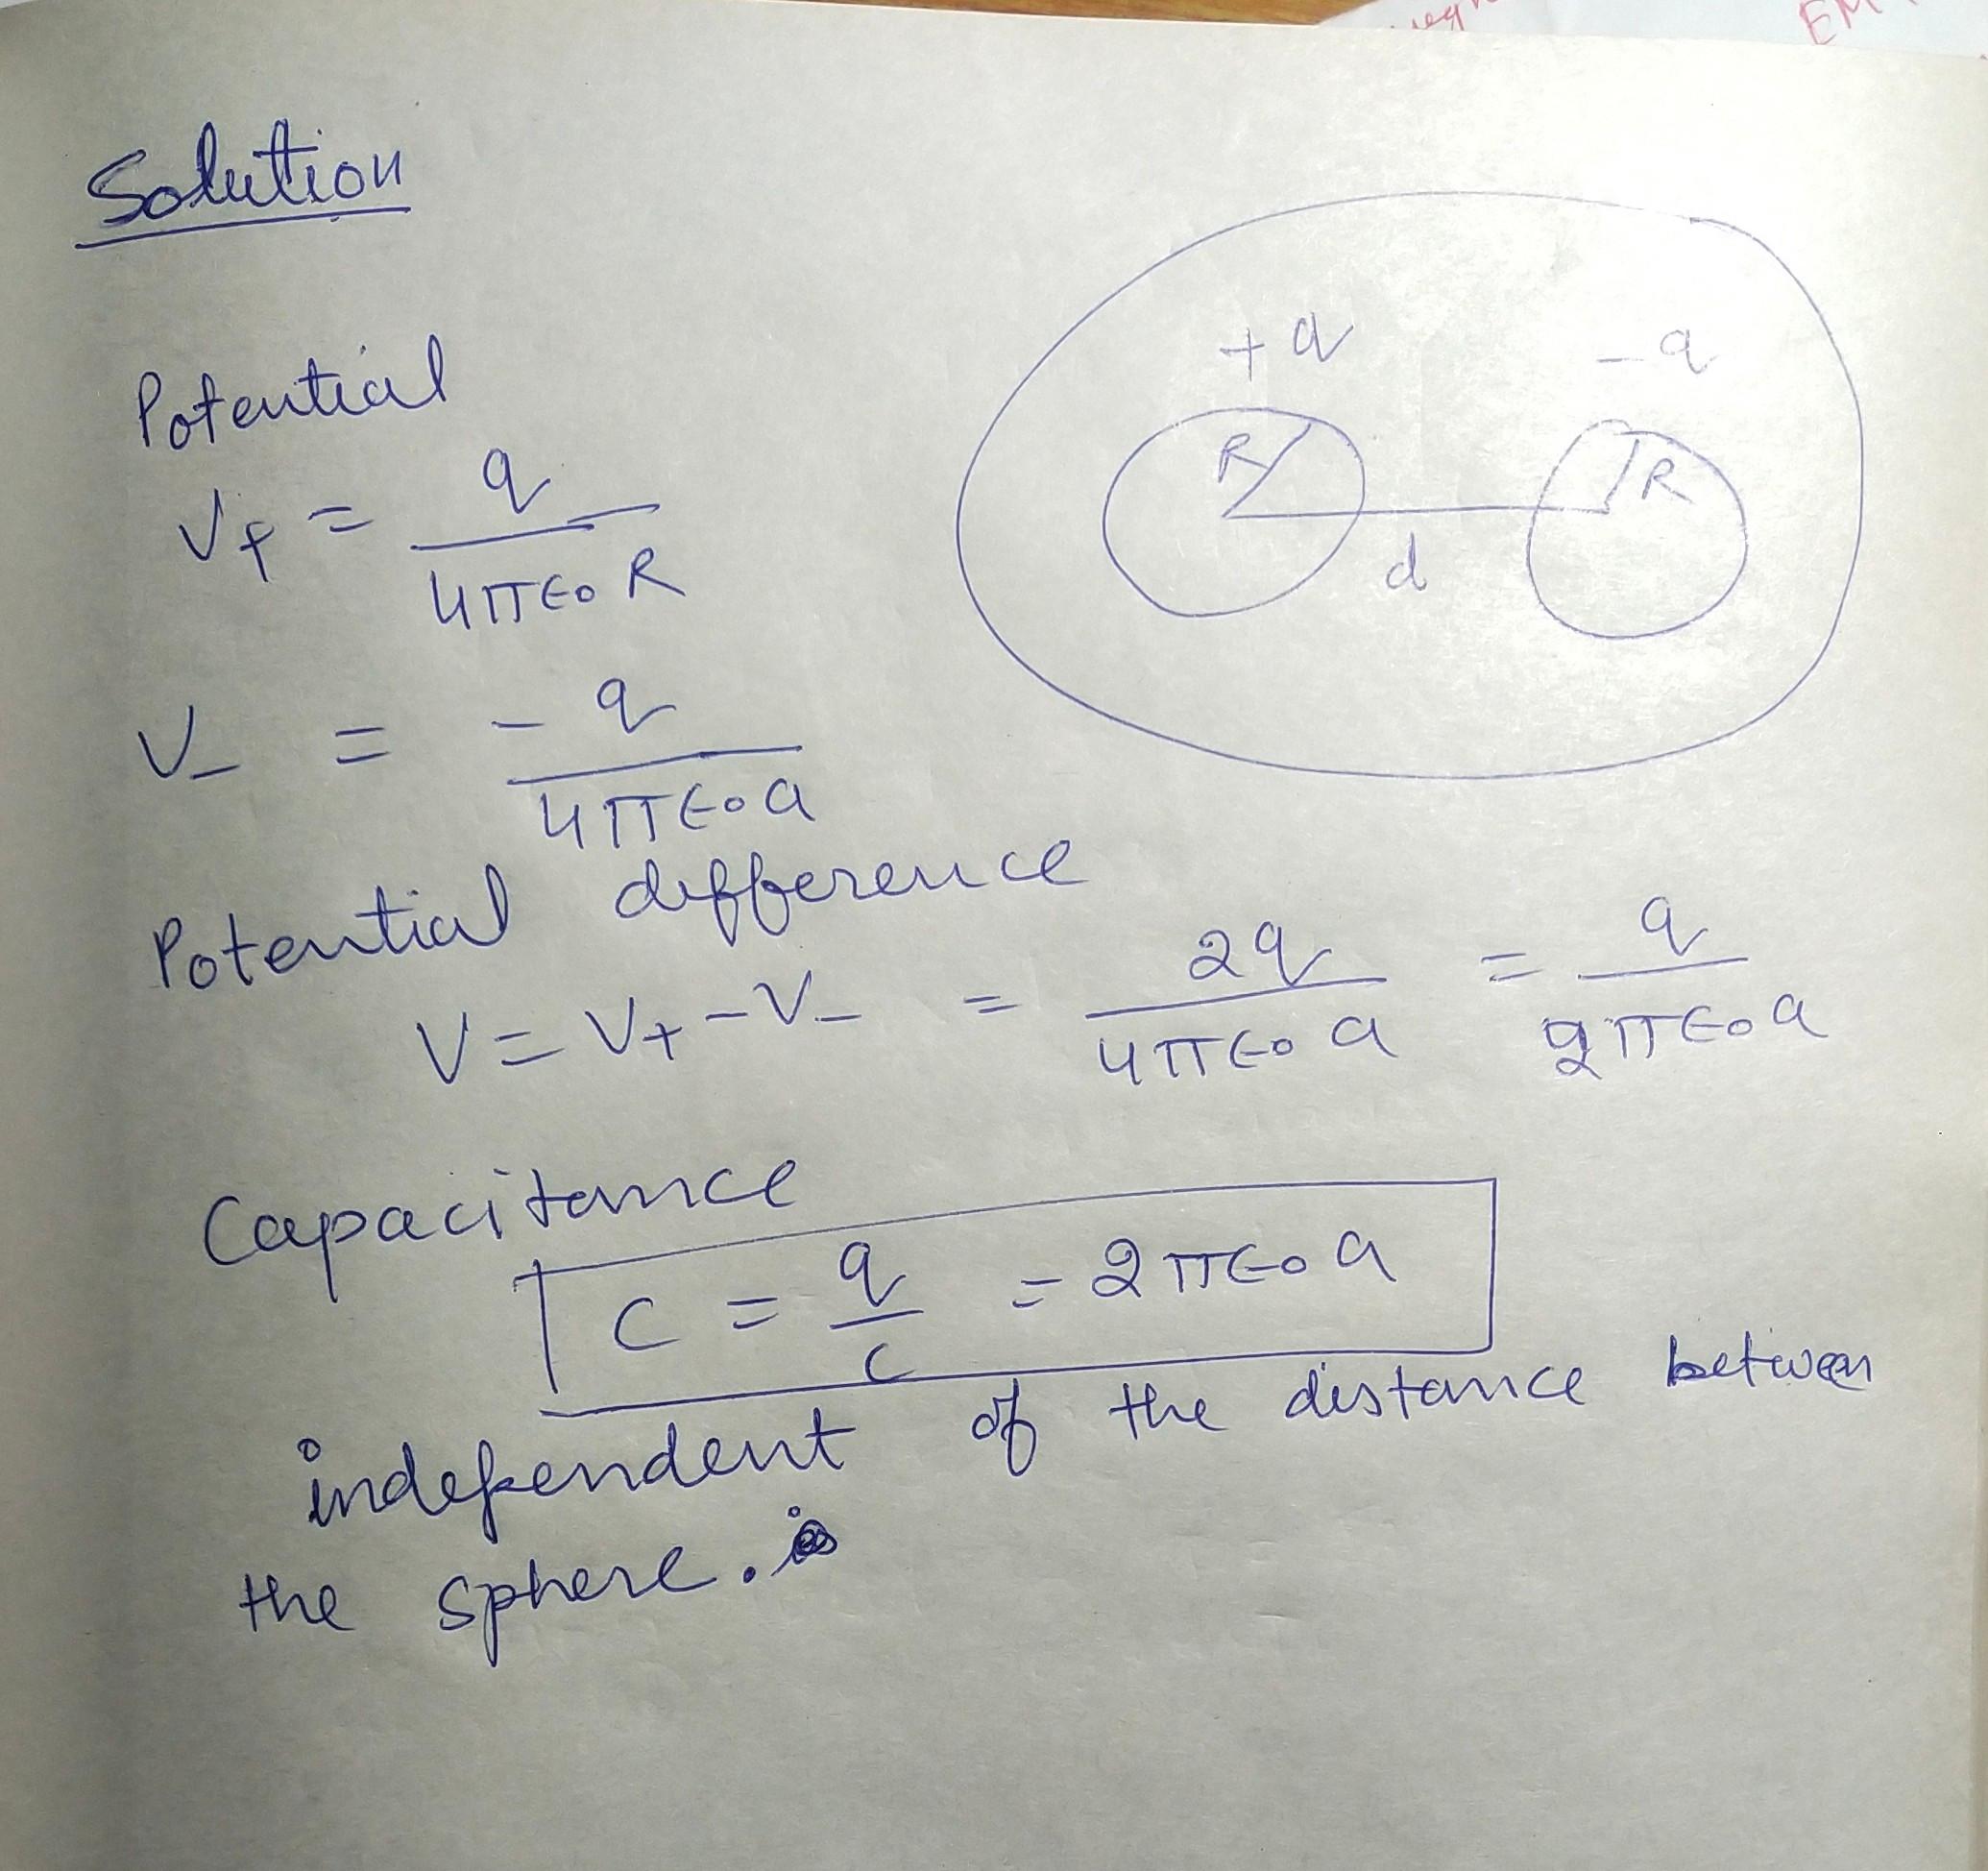 EM
Solution
+q
-q
R
R
d
Potential
V+ = q / 4π∈₀ R
V₋ = -q / 4π∈₀ a
Potential difference
V = V+ - V₋ = 2q / 4π∈₀ a = q / 2π∈₀ a
Capacitance
C = q / C = 2π∈₀ a
independent of the distance between
the sphere.